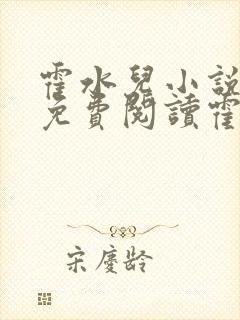 霍水兒小說
免費閱讀霍
宋慶齡